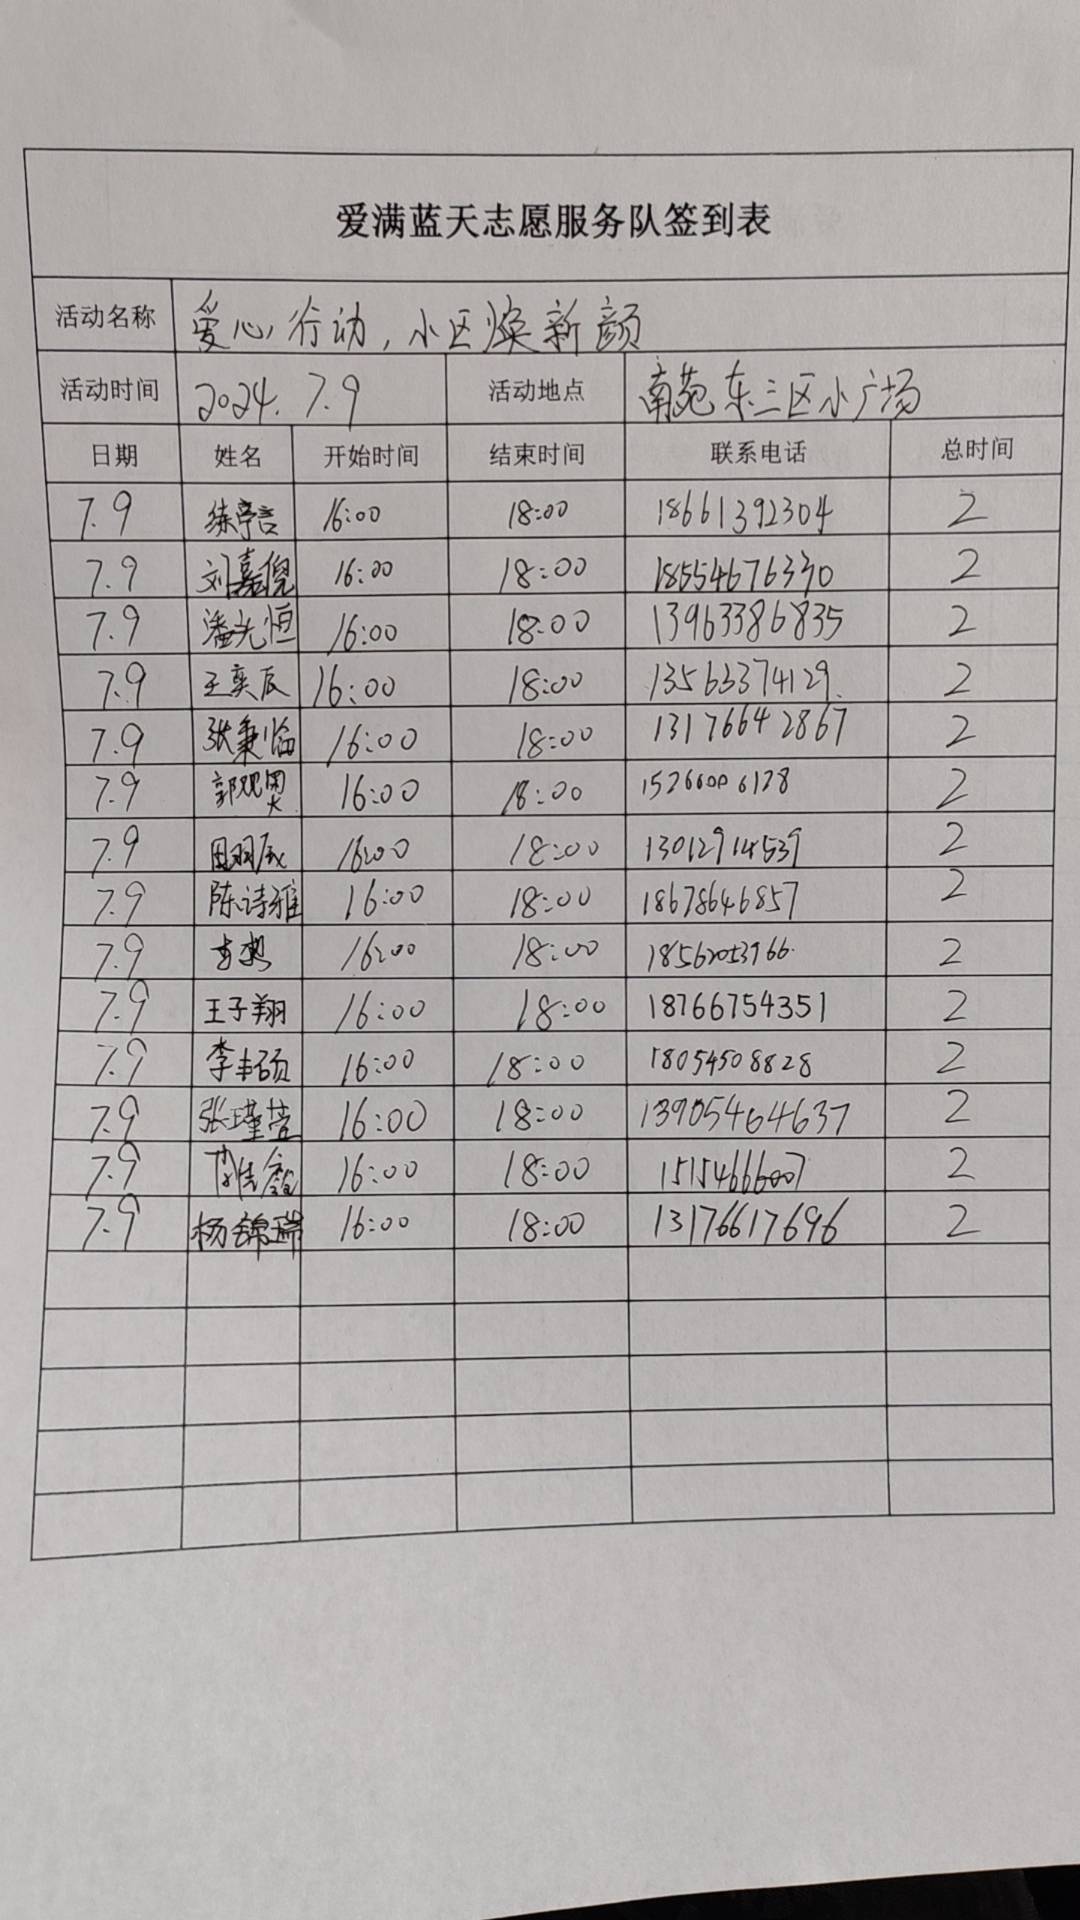 爱满蓝天志愿服务队签到表
活动名称 爱心行动，小区焕新颜
活动时间 2024.7.9 活动地点 南苑东三区小广场
日期 姓名 开始时间 结束时间 联系电话 总时间
7.9 16:00 18:00 18661392304 2
7.9 刘嘉倪 16:00 18:00 18554676330 2
7.9 潘光恒 16:00 18:00 13963386835 2
7.9 王奕辰 16:00 18:00 13563374129 2
7.9 张秉临 16:00 18:00 13176642867 2
7.9 16:00 18:00 15266006128 2
7.9 田羽辰 16:00 18:00 13012914539 2
7.9 陈诗雅 16:00 18:00 18678646857 2
7.9 16:00 18:00 2
7.9 王子翔 16:00 18:00 18766754351 2
7.9 李丰硕 16:00 18:00 18054508828 2
7.9 张瑾萱 16:00 18:00 13905464637 2
7.9 16:00 18:00 15154666007 2
7.9 杨锦瑞 16:00 18:00 13176617696 2